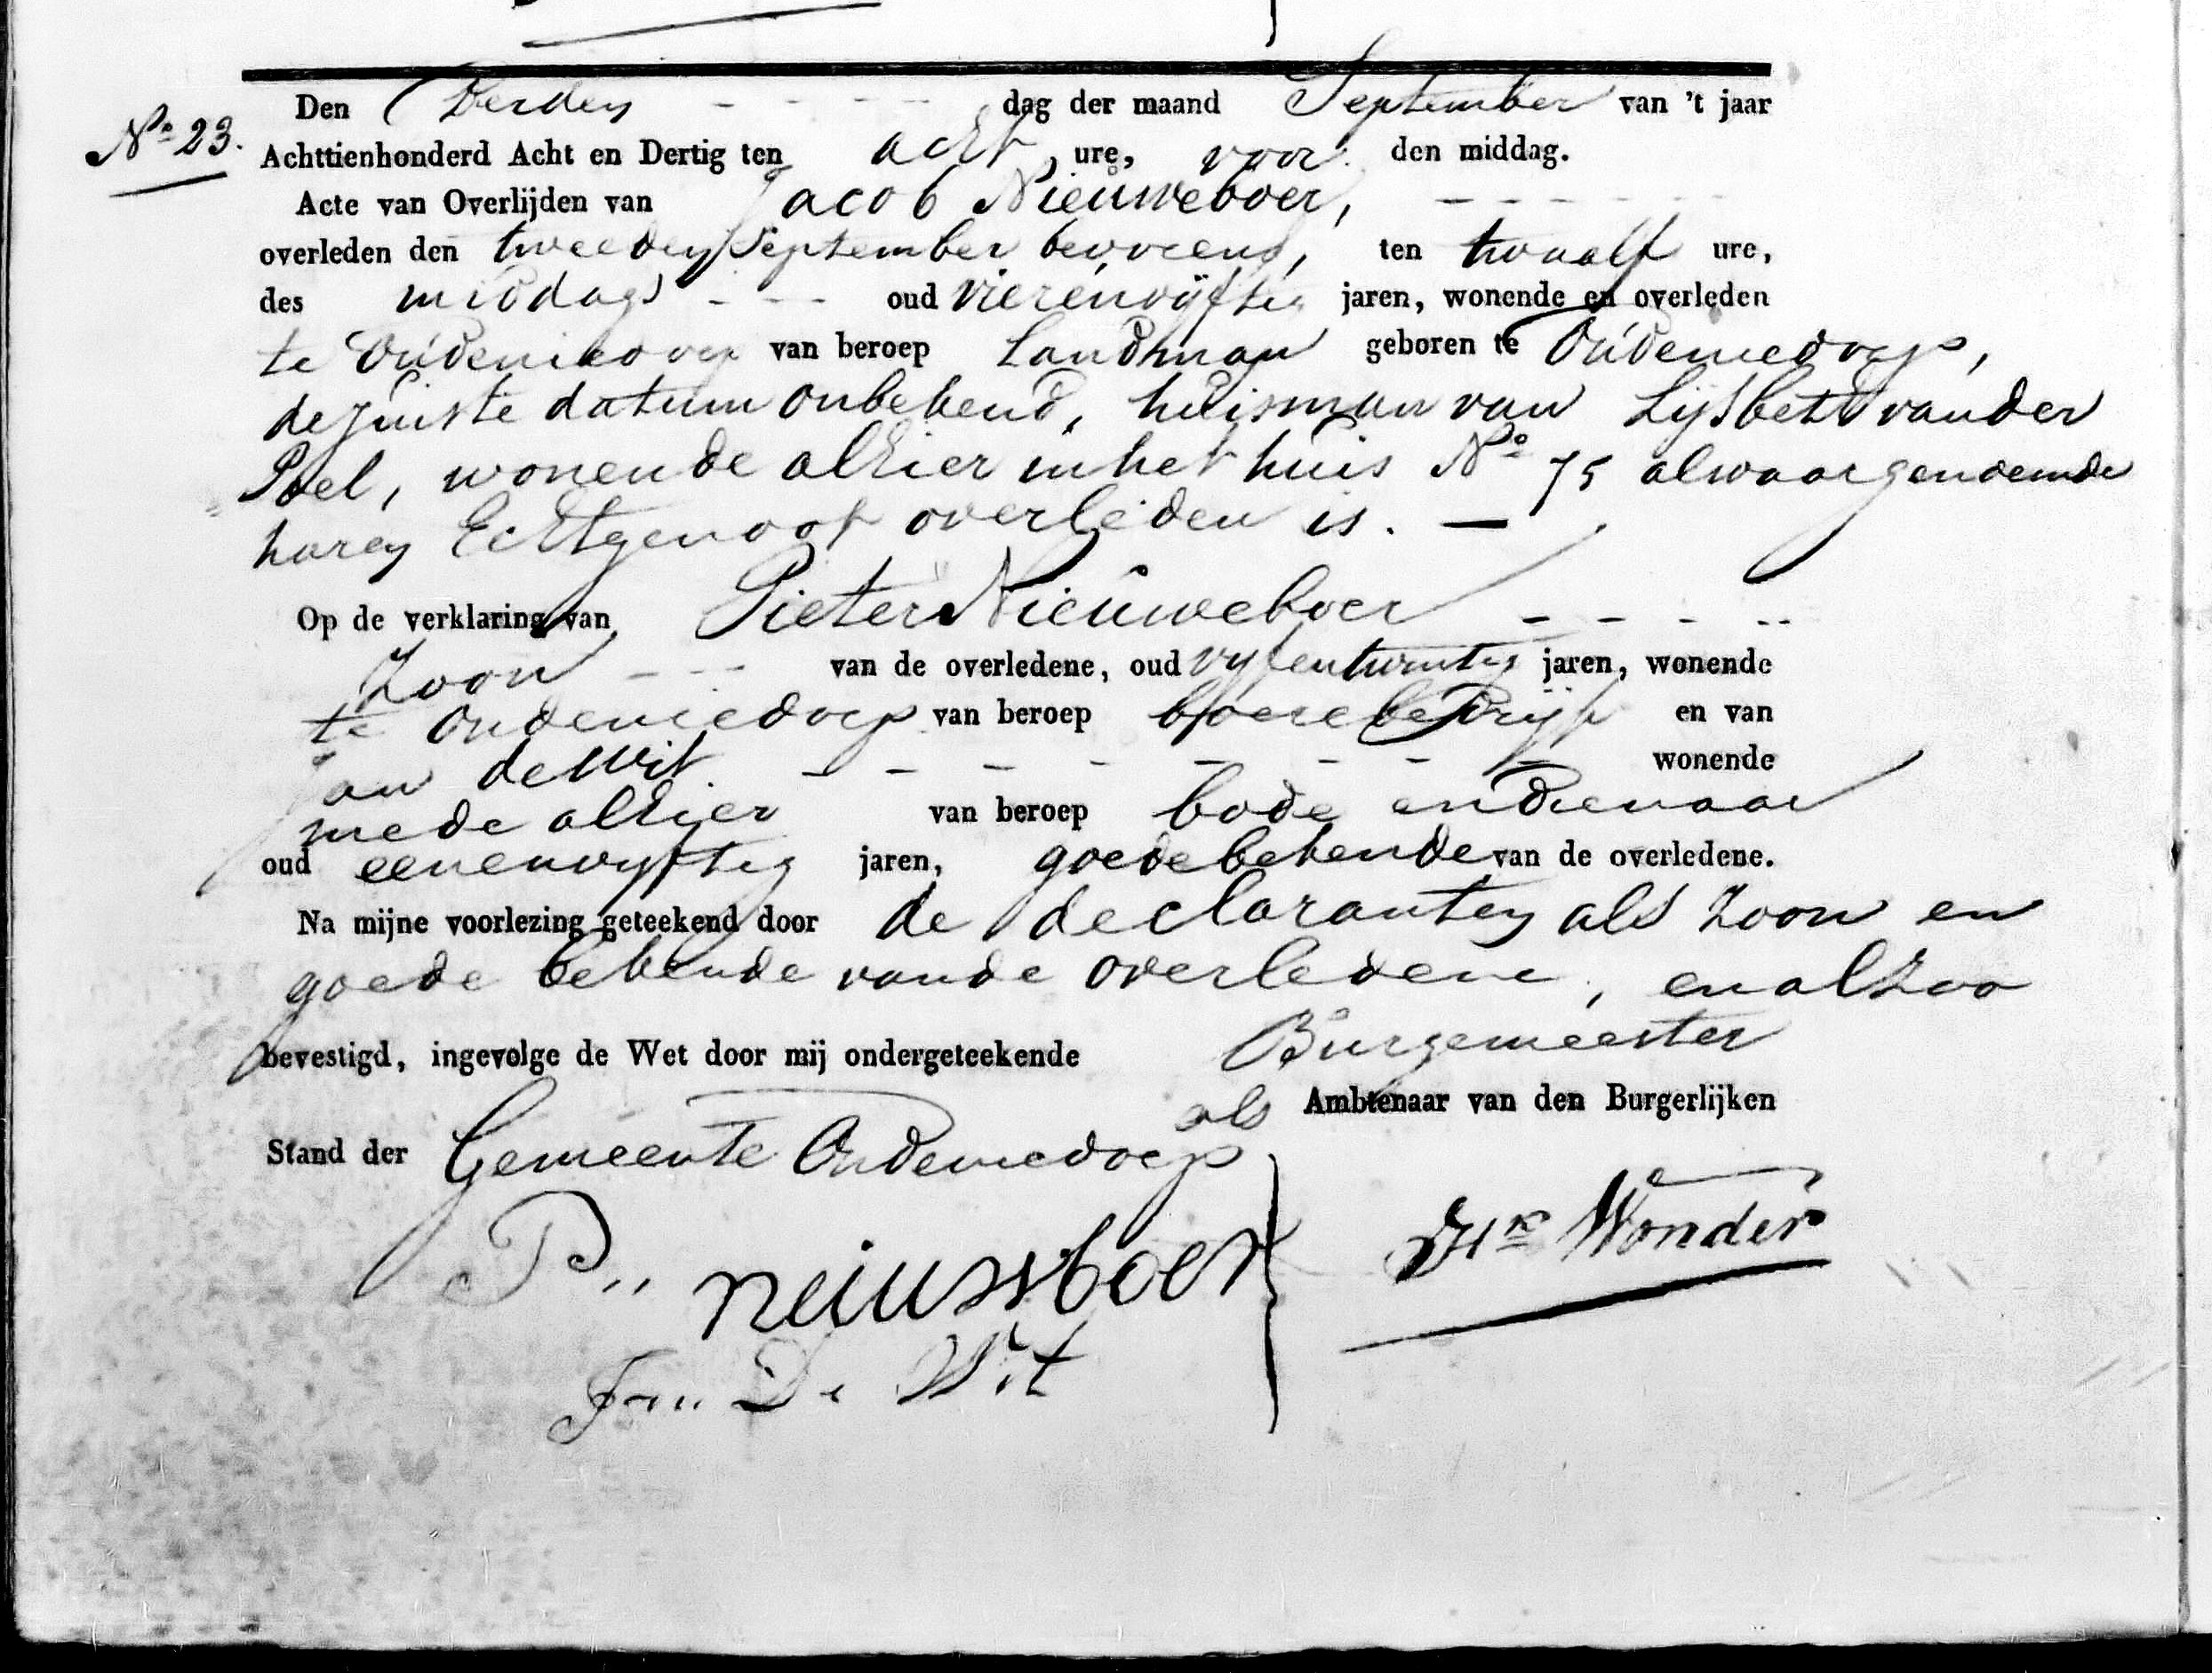 Den Derden - - - - dag der maand September van 't jaar
No 23. Achttienhonderd Acht en Dertig ten acht ure, voor den middag.
Acte van Overlijden van Jacob Nieuweboer, - - - - - -
overleden den tweeden September bevorens, ten twaalf ure,
des middags - - - oud vierenvijftig jaren, wonende en overleden
te Oudeniedorp van beroep Landman geboren te Oudeniedorp,
de juiste datum onbekend, huisman van Lijsbeth vander
Poel, wonende alhier in het huis No 75 alwaar genoemde
haren Echtgenoot overleden is. —
Op de verklaring van Pieter Nieuweboer - - - - -
Zoon - - - van de overledene, oud vyfentwintig jaren, wonende
te Oudeniedorp van beroep boerebedrijf en van
Jan de Wit - - - - - - - - wonende
mede alhier van beroep bode en dienaar
oud eenenvyftig jaren, goede bekende van de overledene.
Na mijne voorlezing geteekend door de declaranten als Zoon en
goede bekende van de overledene, en alzoo
bevestigd, ingevolge de Wet door mij ondergeteekende Burgemeester
als Ambtenaar van den Burgerlijken
Stand der Gemeente Oudeniedorp
P.. neiuwboer
Dk Wonder
Jan De Wit